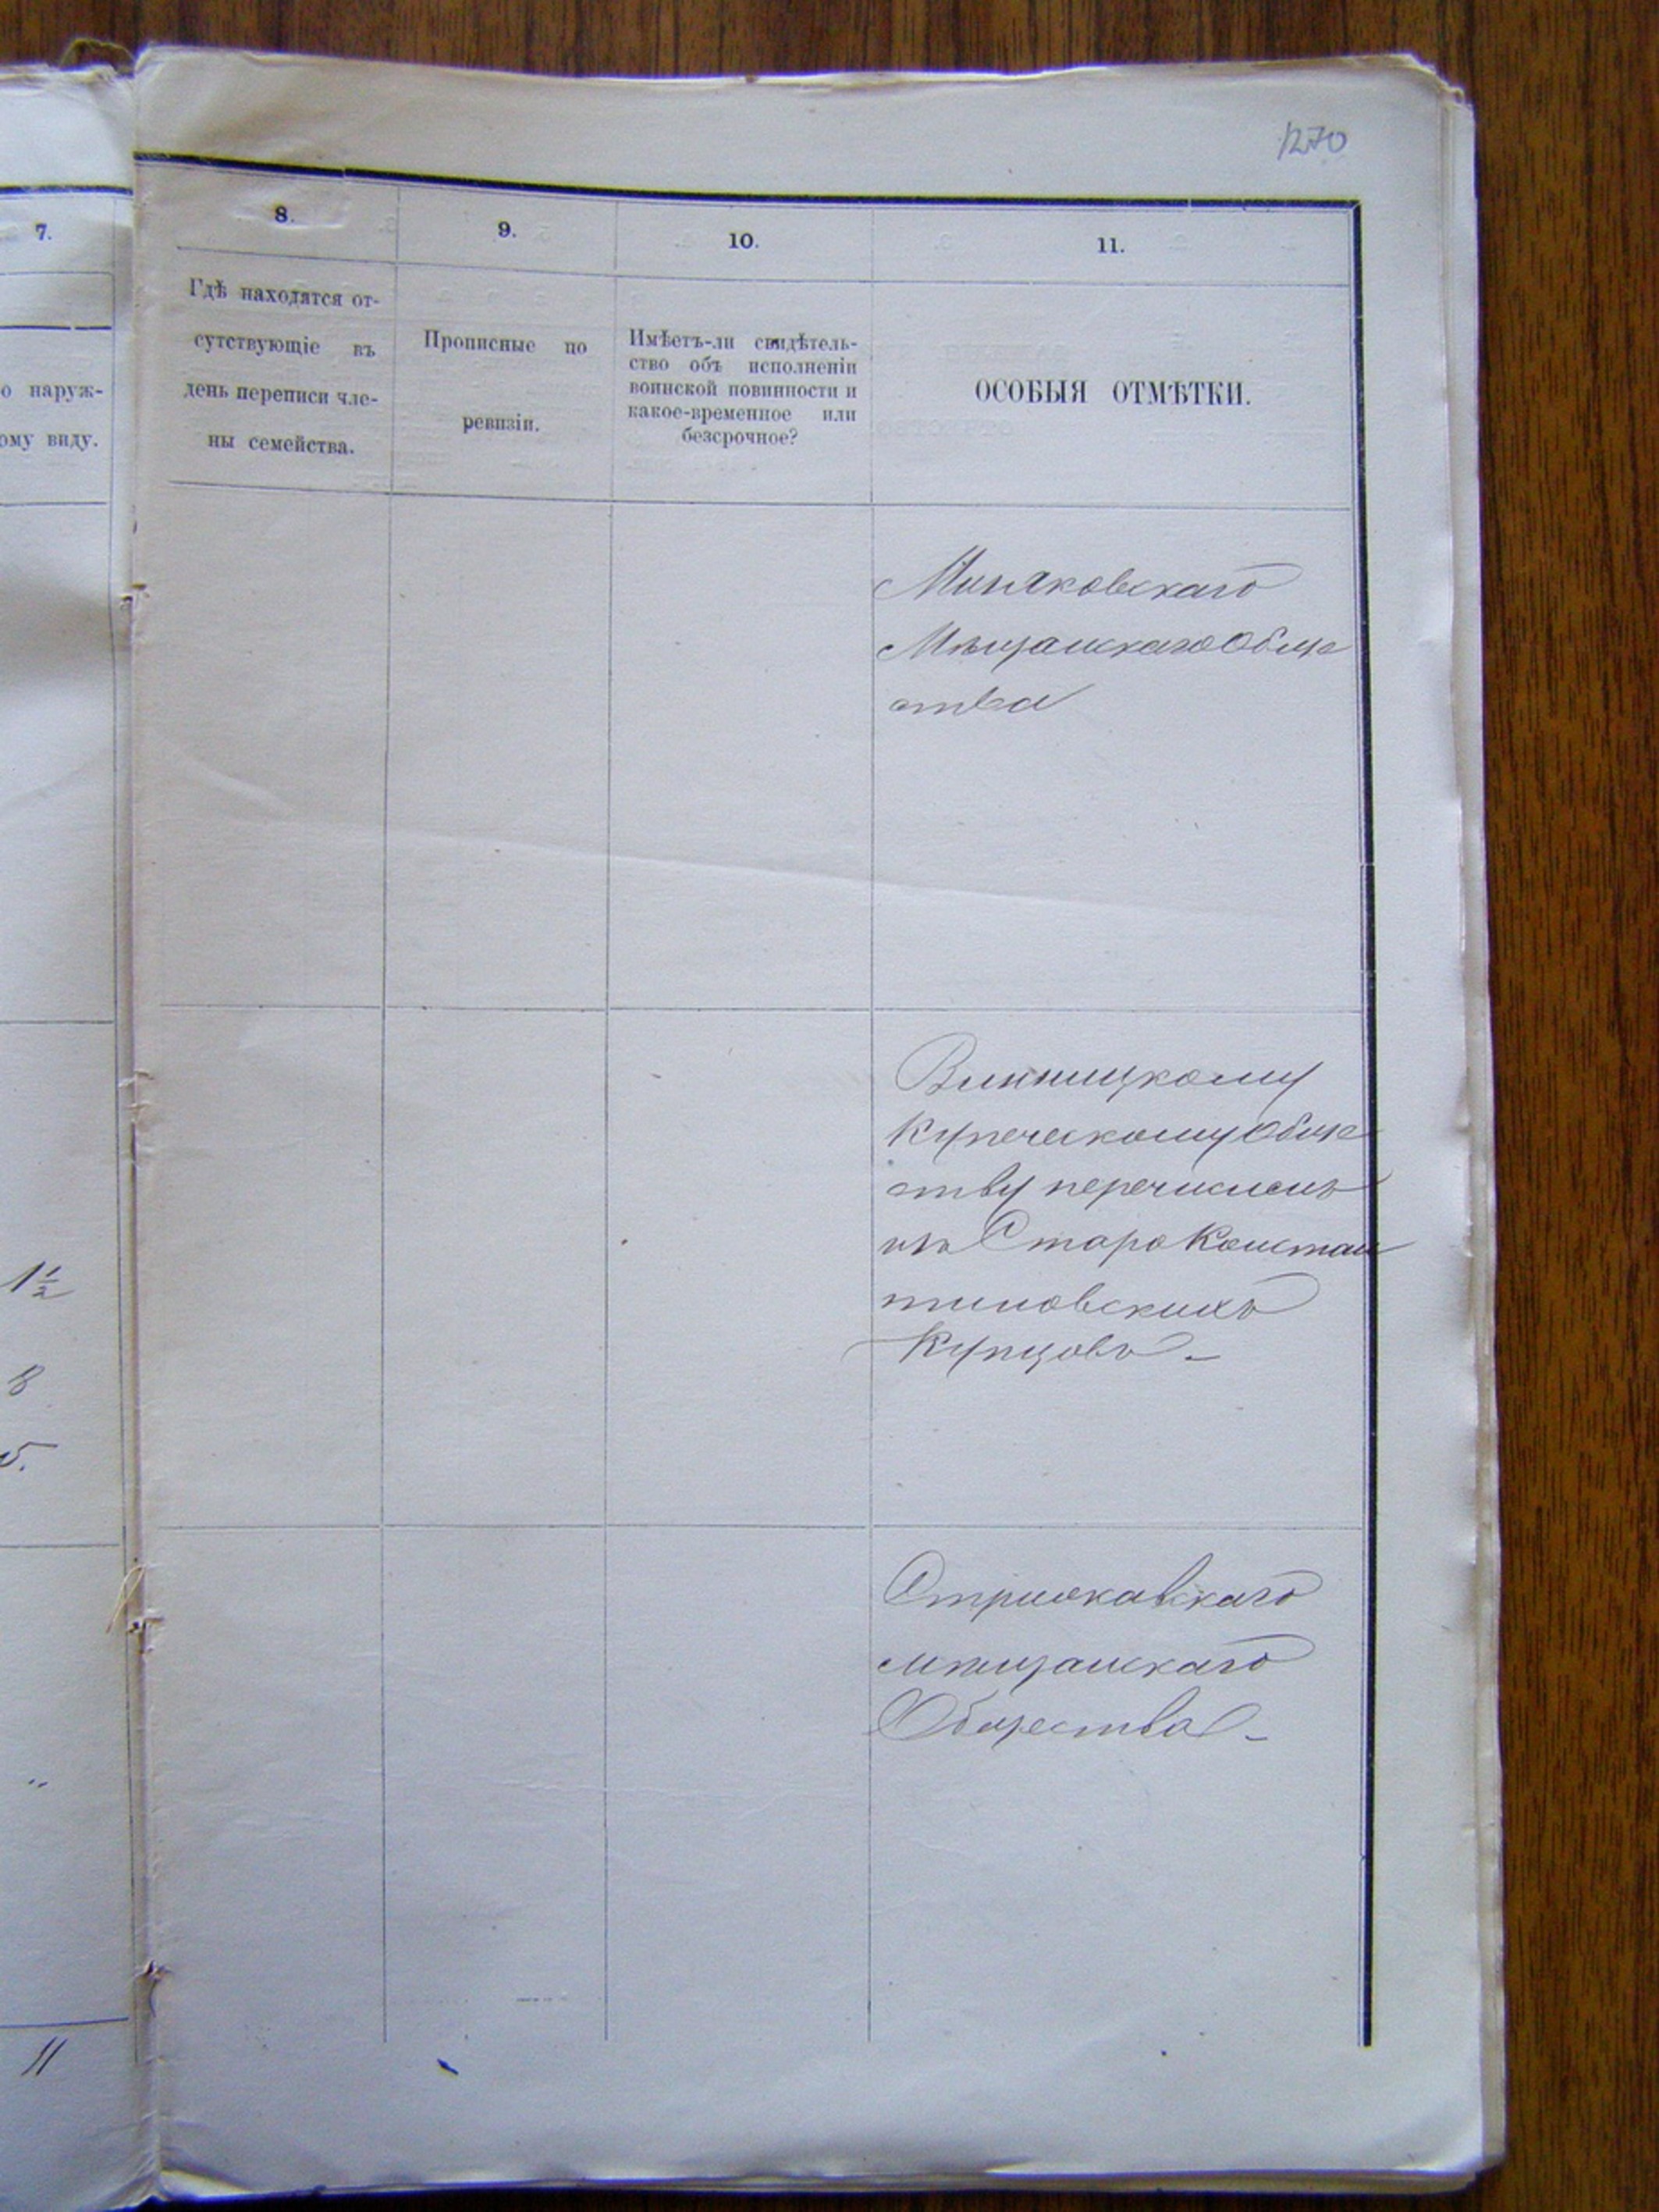 1270
7.
о наруж-
ому виду.
1½
8
5.
"
11
8.
9.
10.
11.
Гдѣ находятся от-
сутствующіе въ
день переписи чле-
ны семейства.
Прописные по
ревизіи.
Имѣетъ-ли свидѣтель-
ство объ исполненіи
воинской повинности и
какое-временное или
безсрочное?
ОСОБЫЯ ОТМѢТКИ.
Миньковскаго
Мѣщанскаго Обще
ства
Винницкому
Купеческому Обще
ству перечисленъ
изъ Старо Констан
тиновскихъ
Купцовъ -
Стрижавскаго
мѣщанскаго
Общества -